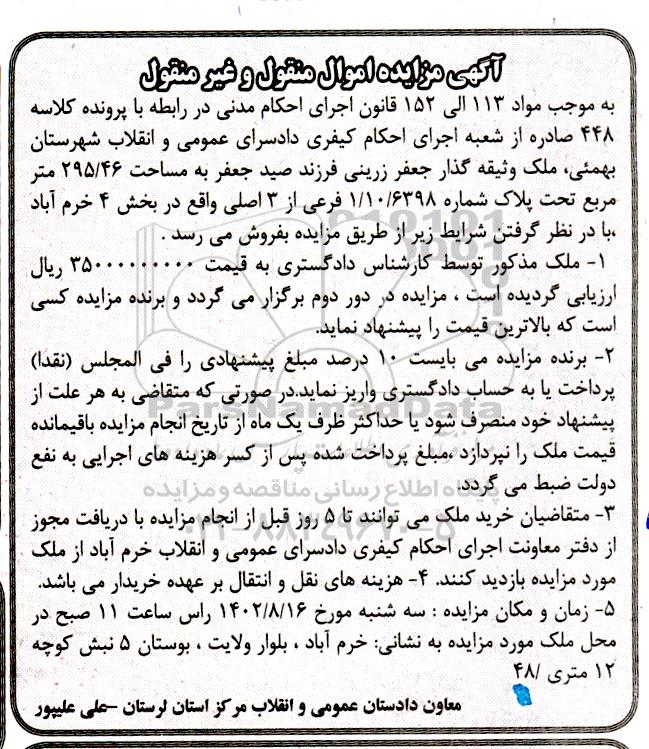 آگهی مزایده اموال منقول و غیر منقول
به موجب مواد ۱۱۳ الی ۱۵۲ قانون اجرای احکام مدنی در رابطه با پرونده کلاسه
۴۴۸ صادره از شعبه اجرای احکام کیفری دادسرای عمومی و انقلاب شهرستان
بهمئی، ملک وثیقه گذار جعفر زرینی فرزند صید جعفر به مساحت ۲۹۵/۴۶ متر
مربع تحت پلاک شماره ۱/۱۰/۶۳۹۸ فرعی از ۳ اصلی واقع در بخش ۴ خرم آباد
،با در نظر گرفتن شرایط زیر از طریق مزایده بفروش می رسد .
۱- ملک مذکور توسط کارشناس دادگستری به قیمت ۳۵۰۰۰۰۰۰۰۰۰ ریال
ارزیابی گردیده است ، مزایده در دور دوم برگزار می گردد و برنده مزایده کسی
است که بالاترین قیمت را پیشنهاد نماید.
۲- برنده مزایده می بایست ۱۰ درصد مبلغ پیشنهادی را فی المجلس (نقدا)
پرداخت یا به حساب دادگستری واریز نماید.در صورتی که متقاضی به هر علت از
پیشنهاد خود منصرف شود یا حداکثر ظرف یک ماه از تاریخ انجام مزایده باقیمانده
قیمت ملک را نپردازد ،مبلغ پرداخت شده پس از کسر هزینه های اجرایی به نفع
دولت ضبط می گردد.
۳- متقاضیان خرید ملک می توانند تا ۵ روز قبل از انجام مزایده با دریافت مجوز
از دفتر معاونت اجرای احکام کیفری دادسرای عمومی و انقلاب خرم آباد از ملک
مورد مزایده بازدید کنند. ۴- هزینه های نقل و انتقال بر عهده خریدار می باشد.
۵- زمان و مکان مزایده : سه شنبه مورخ ۱۴۰۲/۸/۱۶ راس ساعت ۱۱ صبح در
محل ملک مورد مزایده به نشانی: خرم آباد ، بلوار ولایت ، بوستان ۵ نبش کوچه
۱۲ متری /۴۸
معاون دادستان عمومی و انقلاب مرکز استان لرستان -علی علیپور
ParsNamadData
پایگاه اطلاع رسانی مناقصه و مزایده
۰۲۱-۸۸۳۴۹۶۷۰-۵